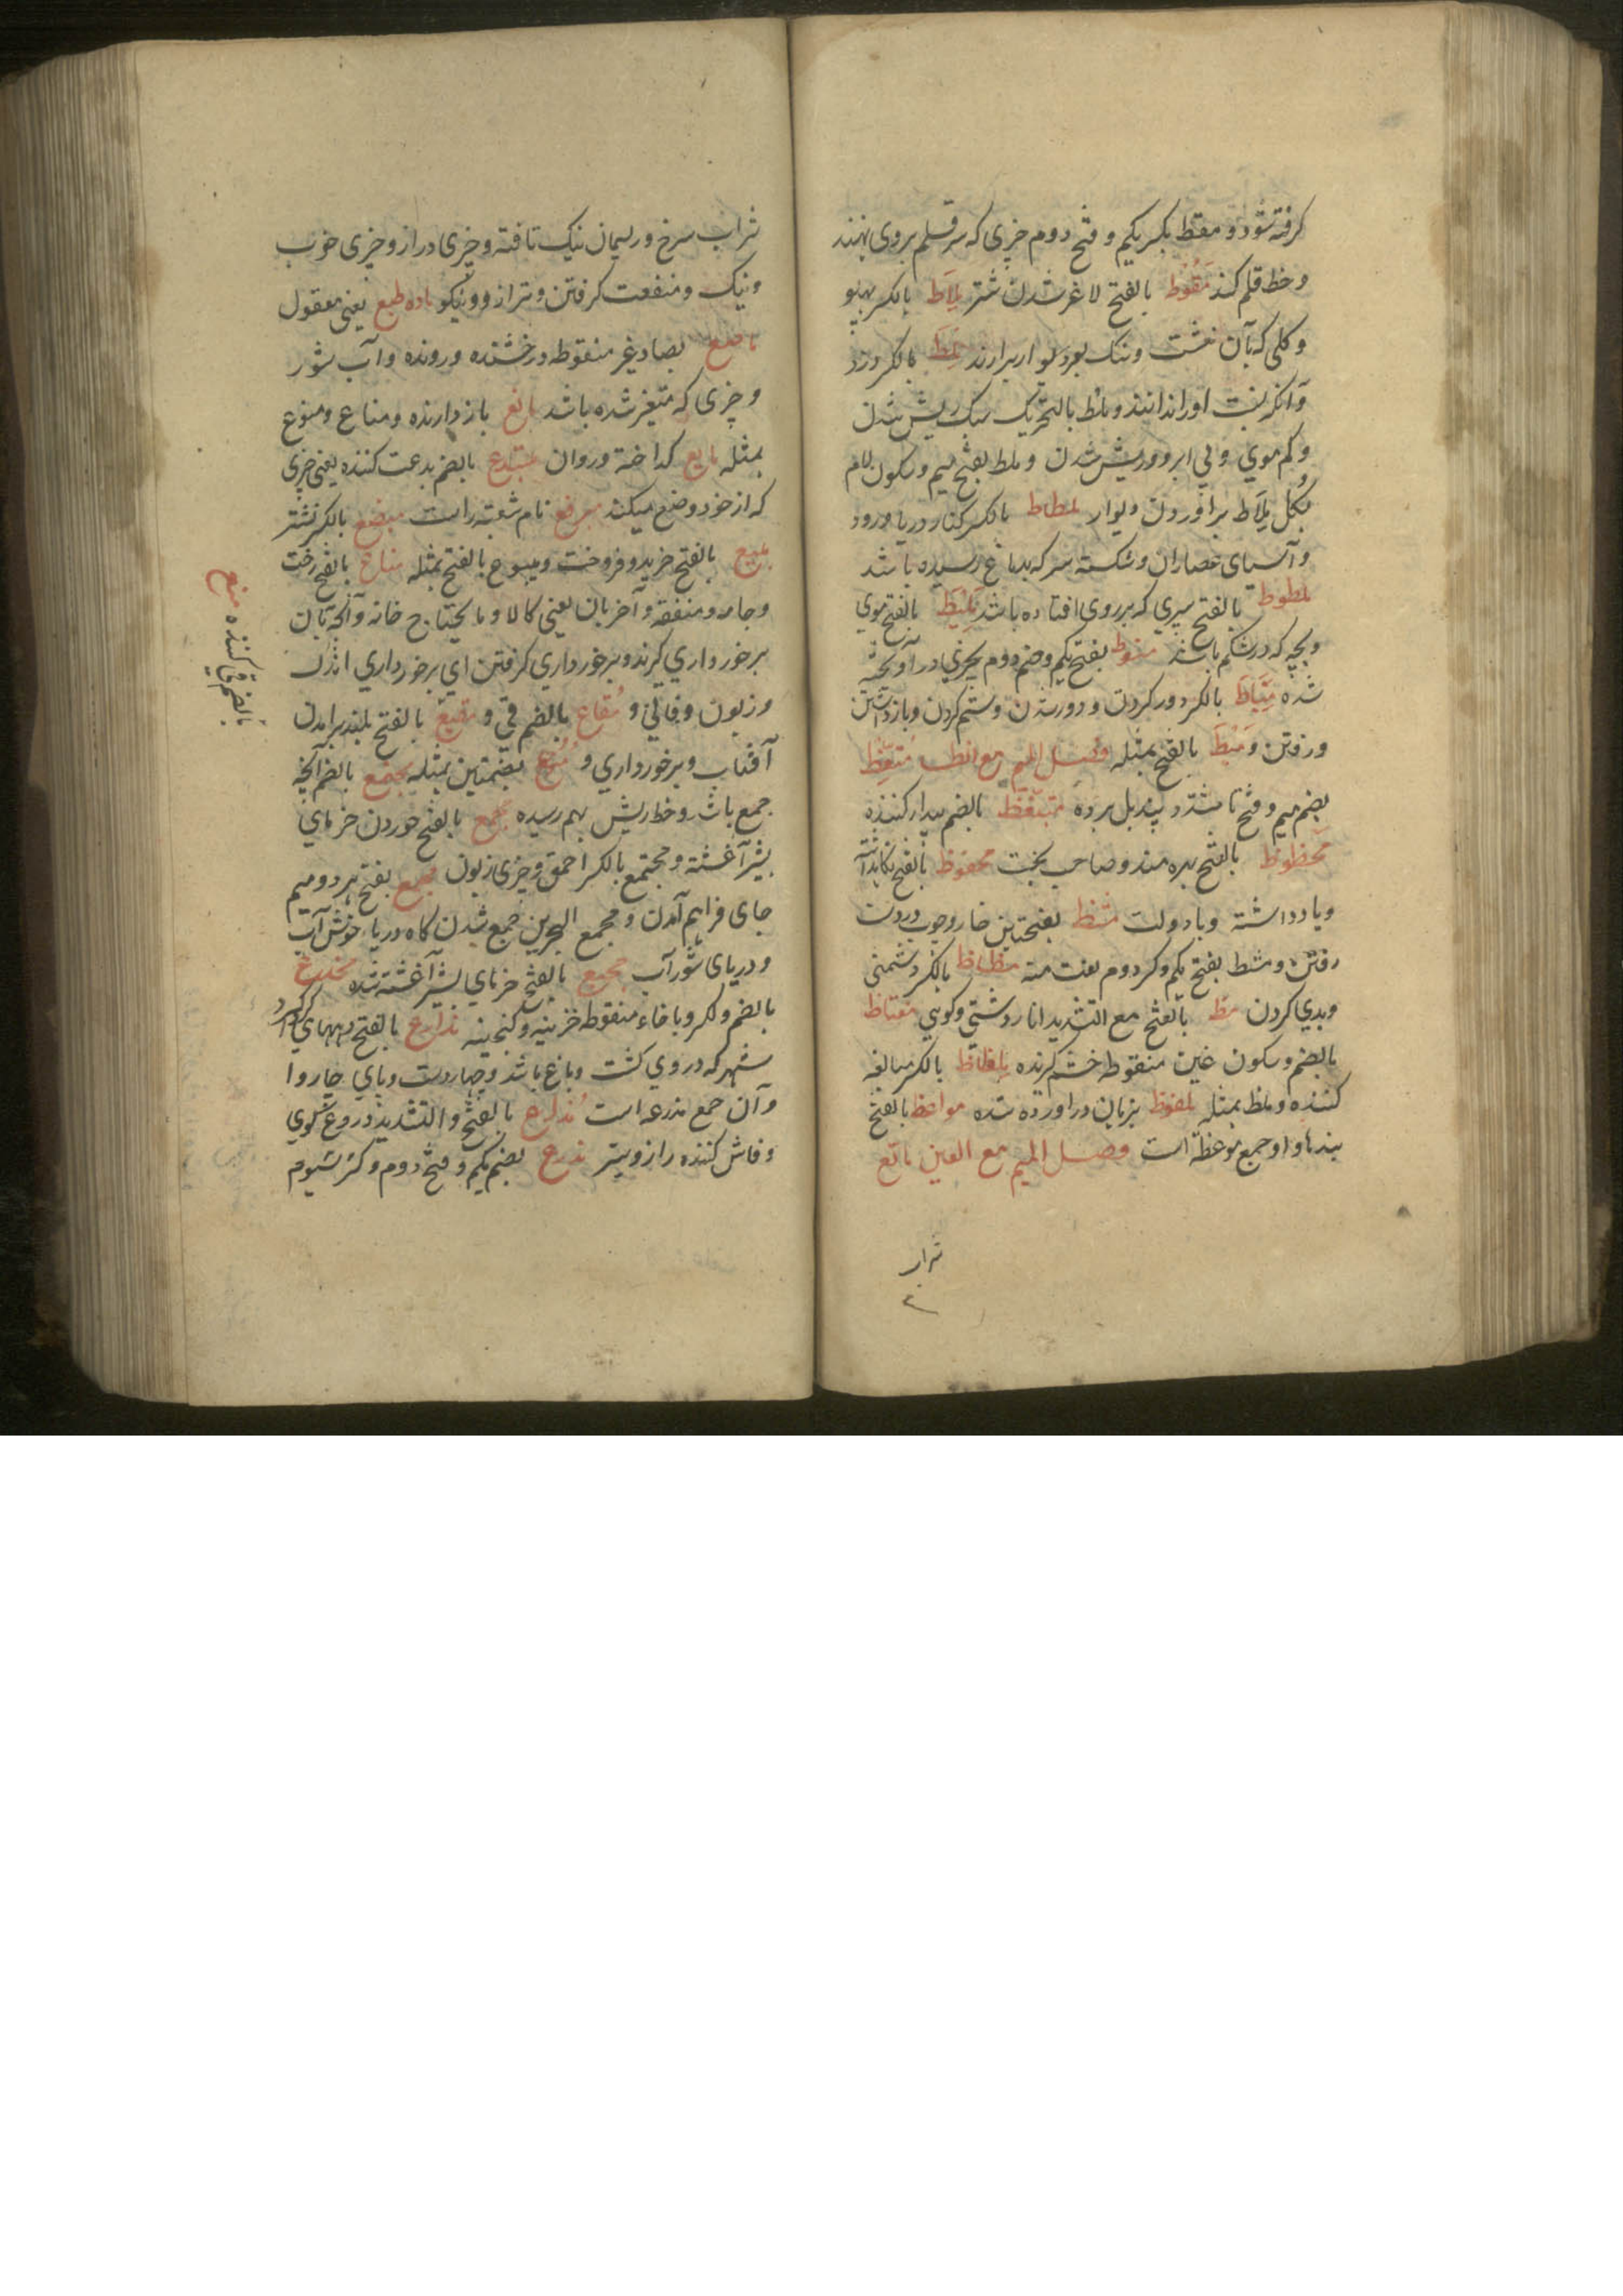 کرفته شود و مقط بکسر یکم و فتح دوم چیزی که سر قلم بروی نهند
و خط قلم کند مقوط بالفتح لاغر شدن شتر ملاط بالکسر پهلو
و کلی که بآن خشت و سنک بر دیوار برارند ملط بالکسر دزد
و آنکه نسب اورا ندانند و ملط بالتحریک سبک ریش شدن
و کم موی و بی ابرو و ریش شدن و ملط بفتح میم و سکون لام
بکل ملاط برآوردن دیوار ملطاط بالکسر کنار دریا و رود
و آسیای عصاران و شکسته سر که بدماغ رسیده باشد
ملطوط بالفتح سپری که بر روی افتاده باشد ملیط بالفتح موی
و بچه که در شکم باشد منوط بفتح یکم و ضم دوم بچیزی در آویخته
شده میاط بالکسر دور کردن و دور شدن و ستم کردن و بازداشتن
و رفتن و میط بالفتح بمثله فصل المیم مع الظا متعظ
بضم میم و فتح تا مشدد پند بل برده متیقظ بالضم بیدار کننده
محظوظ بالفتح بهره مند و صاحب بخت محفوظ بالفتح نکاهداشته
و یاد داشته و با دولت مشظ بفتحتین خار و چوب در دست
رفتن و مشظ بفتح یکم و کسر دوم نعت منه مظاظ بالکسر دشمنی
و بدی کردن مظ بالفتح مع التشدید انار دشتی و کوهی مغتاظ
بالضم و سکون غین منقوطه خشم کرنده ملظاظ بالکسر مبالغه
کننده و ملظ بمثله ملفوظ بزبان در آورده شده مواعظ بالفتح
پندها و او جمع موعظة است فصل المیم مع العین ماتع
شراب
شراب سرخ و ریسمان نیک تافته و چیزی دراز و چیزی خوب
و نیک و منفعت کرفتن و ترازو و نیکو ماده طبع یعنی معقول
ماصع بصاد غیر منقوطه درخشنده و رونده و آب شور
و چیزی که متغیر شده باشد مانع باز دارنده و مناع و منوع
بمثله مایع کداخته و روان مبتدع بالضم بدعت کننده یعنی چیزی
که از خود وضع میکند نام شعبه راست مبضع بالکسر نشتر
مبیع بالفتح خرید و فروخت و مبیوع بالفتح بمثله متاع بالفتح رخت
و جامه و منفعة و آخریان یعنی کالا و ما یحتاج خانه و آنچه بآن
برخورداری کیرند و برخورداری کرفتن ای برخورداری اندک
و زبون و فانی و متقاع بالضم قی و متیع بالفتح بلند برامدن
آفتاب و برخورداری و متوع بضمتین بمثله مجتمع بالضم آنچه
جمع باشد و خط ریش بهم رسیده مجع بالفتح خوردن خرمای
بشیر آغشته و مجتمع بالکسر احمق و چیزی زبون مجمع بفتح هر دو میم
جای فراهم آمدن و مجمع البحرین جمع شدن کاه دریاء خوش آب
و دریای شور آب مجیع بالفتح خرمای بشیر آغشته شده مخدع
بالضم و الکسر و با خاء منقوطه خزینه و کنجینه مذارع بالفتح دیههای کرداکرد
شهر که در وی کشت و باغ باشد و چهار دست و پای چاروا
و آن جمع مذرعه است مذاع بالفتح و التشدید دروغ کوی
و فاش کننده راز و ستر مذرع بضم یکم و فتح دوم و کسر سیوم
بالضم قی کننده متع